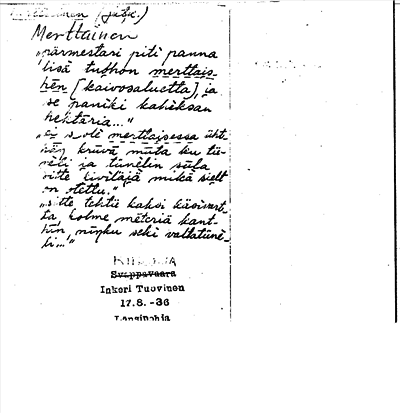 (jatk.)
Merttainen
"närmestari piti panna
lisä tuohon merttais-
hēn [kaivosaluetta], ja
se paniki kaheksan
hehtāria..."
"ei s_ole merttaisessa üht-
hän krūvā mūta ku tü-
nēli ja tünēlin süla
sitte kiviläjä mikä sielt
on otettu."
"sitte tehtü kaksi käsivart-
ta, kolme mēteriä kant-
hīn, niṇku seki valtatünē-
li..."
Svappavaara
Inkeri Tuovinen
17.8.-36